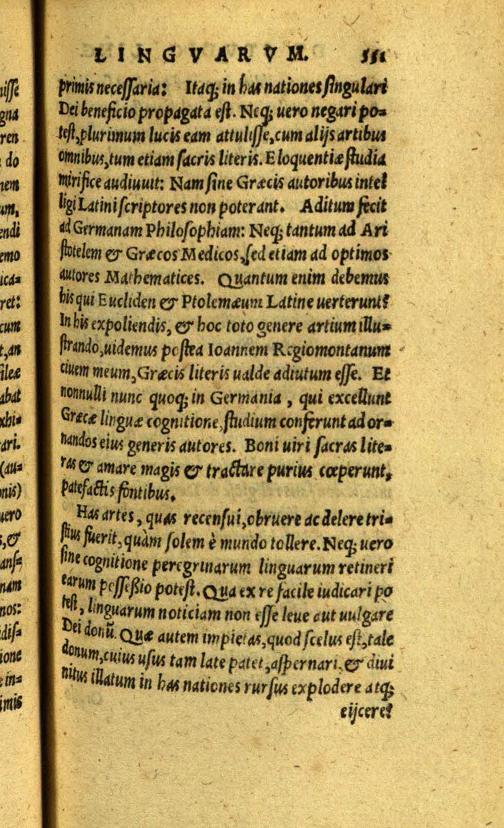 LINGVARVM. 551
primis necessaria: Itaq; in has nationes singulari
Dei beneficio propagata est. Neq; uero negari po=
test, plurimum lucis eam attulisse, cum alijs artibus
omnibus, tum etiam sacris literis. Eloquentiæ studia
mirifice adiuuit: Nam sine Græcis autoribus intel
ligi Latini scriptores non poterant. Aditum fecit
ad Germanam Philosophiam: Neq; tantum ad Ari
stotelem & Græcos Medicos, sed etiam ad optimos
autores Mathematices. Quantum enim debemus
his qui Eucliden & Ptolemæum Latine uerterunt?
In his expoliendis, & hoc toto genere artium illu=
strando, uidemus postea Ioannem Regiomontanum
ciuem meum, Græcis literis ualde adiutum esse. Et
nonnulli nunc quoq; in Germania, qui excellunt
Græcæ linguæ cognitione, studium conferunt ad or=
nandos eius generis autores. Boni uiri sacras lite=
ras & amare magis & tractare purius cœperunt,
patefactis fontibus.
Has artes, quas recensui, obruere ac delere tri=
stius fuerit, quàm solem è mundo tollere. Neq; uero
sine cognitione peregrinarum linguarum retineri
earum possessio potest. Qua ex re facile iudicari po
test, linguarum noticiam non esse leue aut uulgare
Dei donũ. Quæ autem impietas, quod scelus est, tale
donum, cuius usus tam late patet, aspernari, & diui
nitus illatum in has nationes rursus explodere atq;
eijcere?